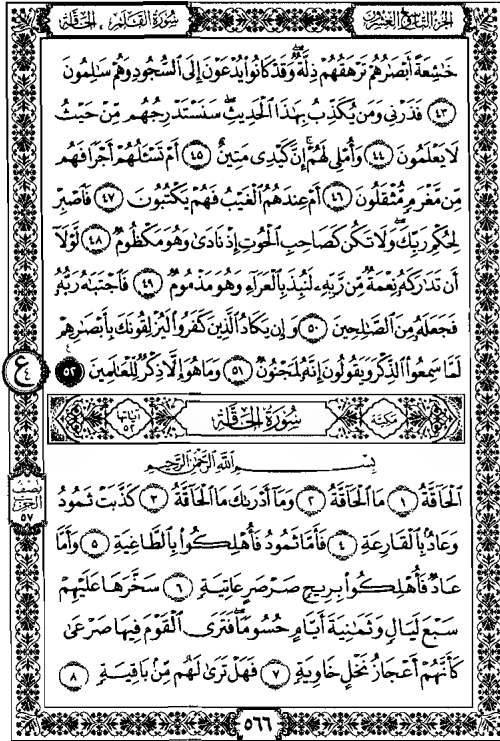 الجزء التاسع والعشرون
سورة القلم ، الحاقة
خَٰشِعَةً أَبْصَٰرُهُمْ تَرْهَقُهُمْ ذِلَّةٌۖ وَقَدْ كَانُوا۟ يُدْعَوْنَ إِلَى ٱلسُّجُودِ وَهُمْ سَٰلِمُونَ
٤٣ فَذَرْنِى وَمَن يُكَذِّبُ بِهَٰذَا ٱلْحَدِيثِۖ سَنَسْتَدْرِجُهُم مِّنْ حَيْثُ
لَا يَعْلَمُونَ ٤٤ وَأُمْلِى لَهُمْۚ إِنَّ كَيْدِى مَتِينٌ ٤٥ أَمْ تَسْـَٔلُهُمْ أَجْرًا فَهُم
مِّن مَّغْرَمٍ مُّثْقَلُونَ ٤٦ أَمْ عِندَهُمُ ٱلْغَيْبُ فَهُمْ يَكْتُبُونَ ٤٧ فَٱصْبِرْ
لِحُكْمِ رَبِّكَ وَلَا تَكُن كَصَاحِبِ ٱلْحُوتِ إِذْ نَادَىٰ وَهُوَ مَكْظُومٌ ٤٨ لَّوْلَآ
أَن تَدَٰرَكَهُۥ نِعْمَةٌ مِّن رَّبِّهِۦ لَنُبِذَ بِٱلْعَرَآءِ وَهُوَ مَذْمُومٌ ٤٩ فَٱجْتَبَٰهُ رَبُّهُۥ
فَجَعَلَهُۥ مِنَ ٱلصَّٰلِحِينَ ٥٠ وَإِن يَكَادُ ٱلَّذِينَ كَفَرُوا۟ لَيُزْلِقُونَكَ بِأَبْصَٰرِهِمْ
لَمَّا سَمِعُوا۟ ٱلذِّكْرَ وَيَقُولُونَ إِنَّهُۥ لَمَجْنُونٌ ٥١ وَمَا هُوَ إِلَّا ذِكْرٌ لِّلْعَٰلَمِينَ ٥٢
ع
٤
مكية
سورة الحاقة
آياتها ٥٢
بِسْمِ ٱللَّهِ ٱلرَّحْمَٰنِ ٱلرَّحِيمِ
ٱلْحَآقَّةُ ١ مَا ٱلْحَآقَّةُ ٢ وَمَآ أَدْرَىٰكَ مَا ٱلْحَآقَّةُ ٣ كَذَّبَتْ ثَمُودُ
نصف
الحزب
٥٧
وَعَادٌۢ بِٱلْقَارِعَةِ ٤ فَأَمَّا ثَمُودُ فَأُهْلِكُوا۟ بِٱلطَّاغِيَةِ ٥ وَأَمَّا
عَادٌ فَأُهْلِكُوا۟ بِرِيحٍ صَرْصَرٍ عَاتِيَةٍ ٦ سَخَّرَهَا عَلَيْهِمْ
سَبْعَ لَيَالٍ وَثَمَٰنِيَةَ أَيَّامٍ حُسُومًاۖ فَتَرَى ٱلْقَوْمَ فِيهَا صَرْعَىٰ
كَأَنَّهُمْ أَعْجَازُ نَخْلٍ خَاوِيَةٍ ٧ فَهَلْ تَرَىٰ لَهُم مِّنۢ بَاقِيَةٍ ٨
٥٦٦